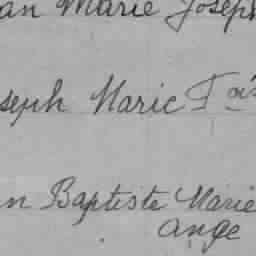 an Marie Joseph
seph Marie
n Baptiste Marie
Ange